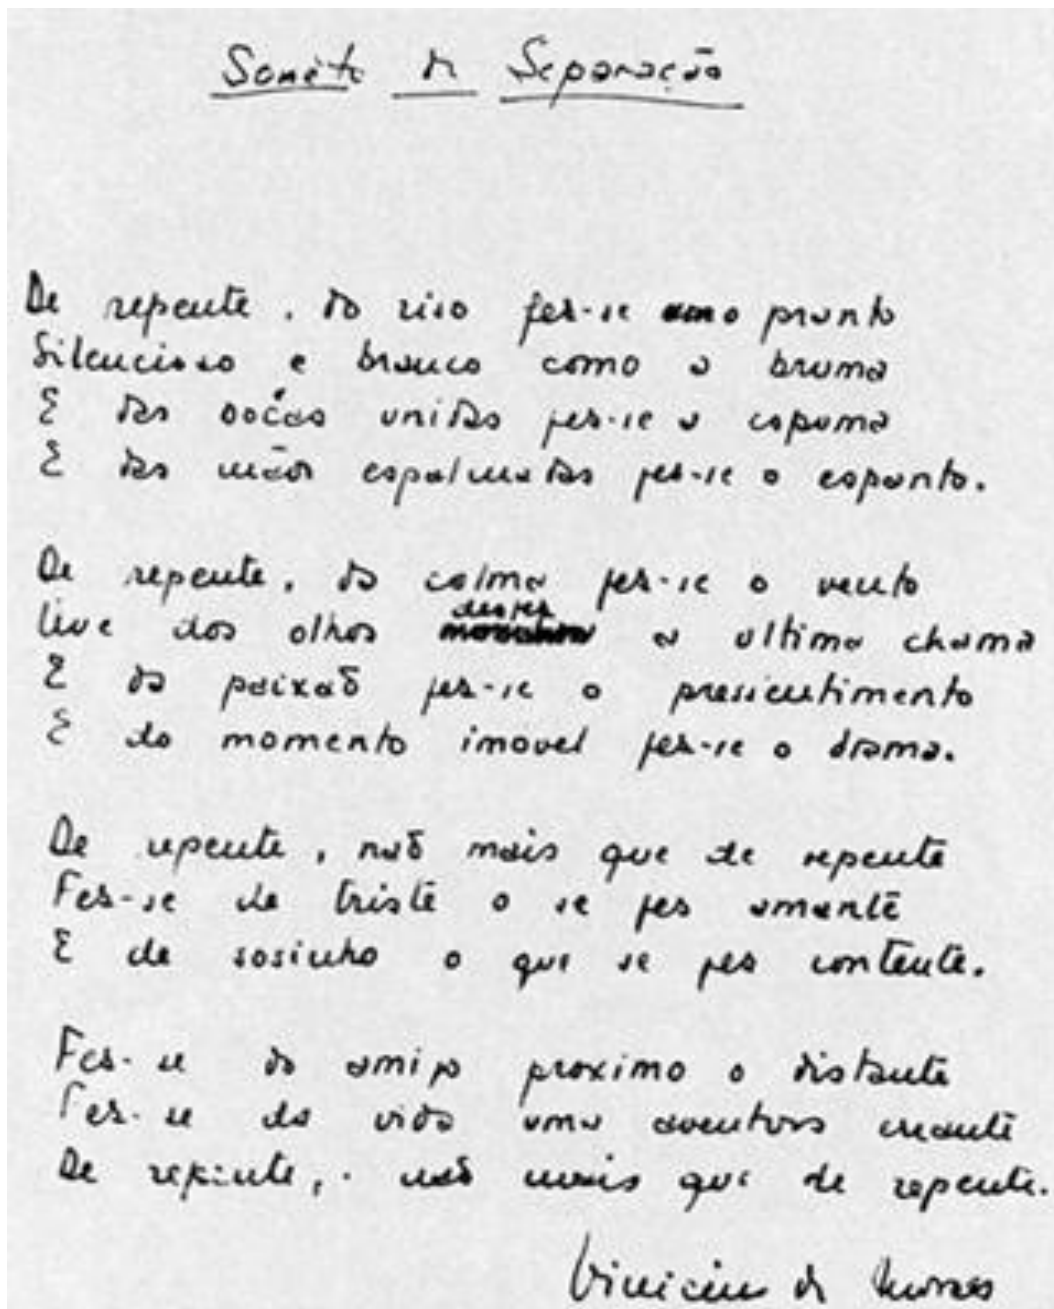 Sonêto de Separação
De repente, do riso fez-se o pranto
Silencioso e branco como a bruma
E das bocas unidas fez-se a espuma
E das mãos espalmadas fez-se o espanto.
De repente, da calma fez-se o vento
Que dos olhos desfez a ultima chama
E da paixão fez-se o pressentimento
E do momento imovel fez-se o drama.
De repente, não mais que de repente
Fez-se de triste o se fez amante
E de sosinho o que se fez contente.
Fez-se do amigo proximo o distante
Fez-se da vida uma aventura errante
De repente, não mais que de repente.
Vinicius de Moraes